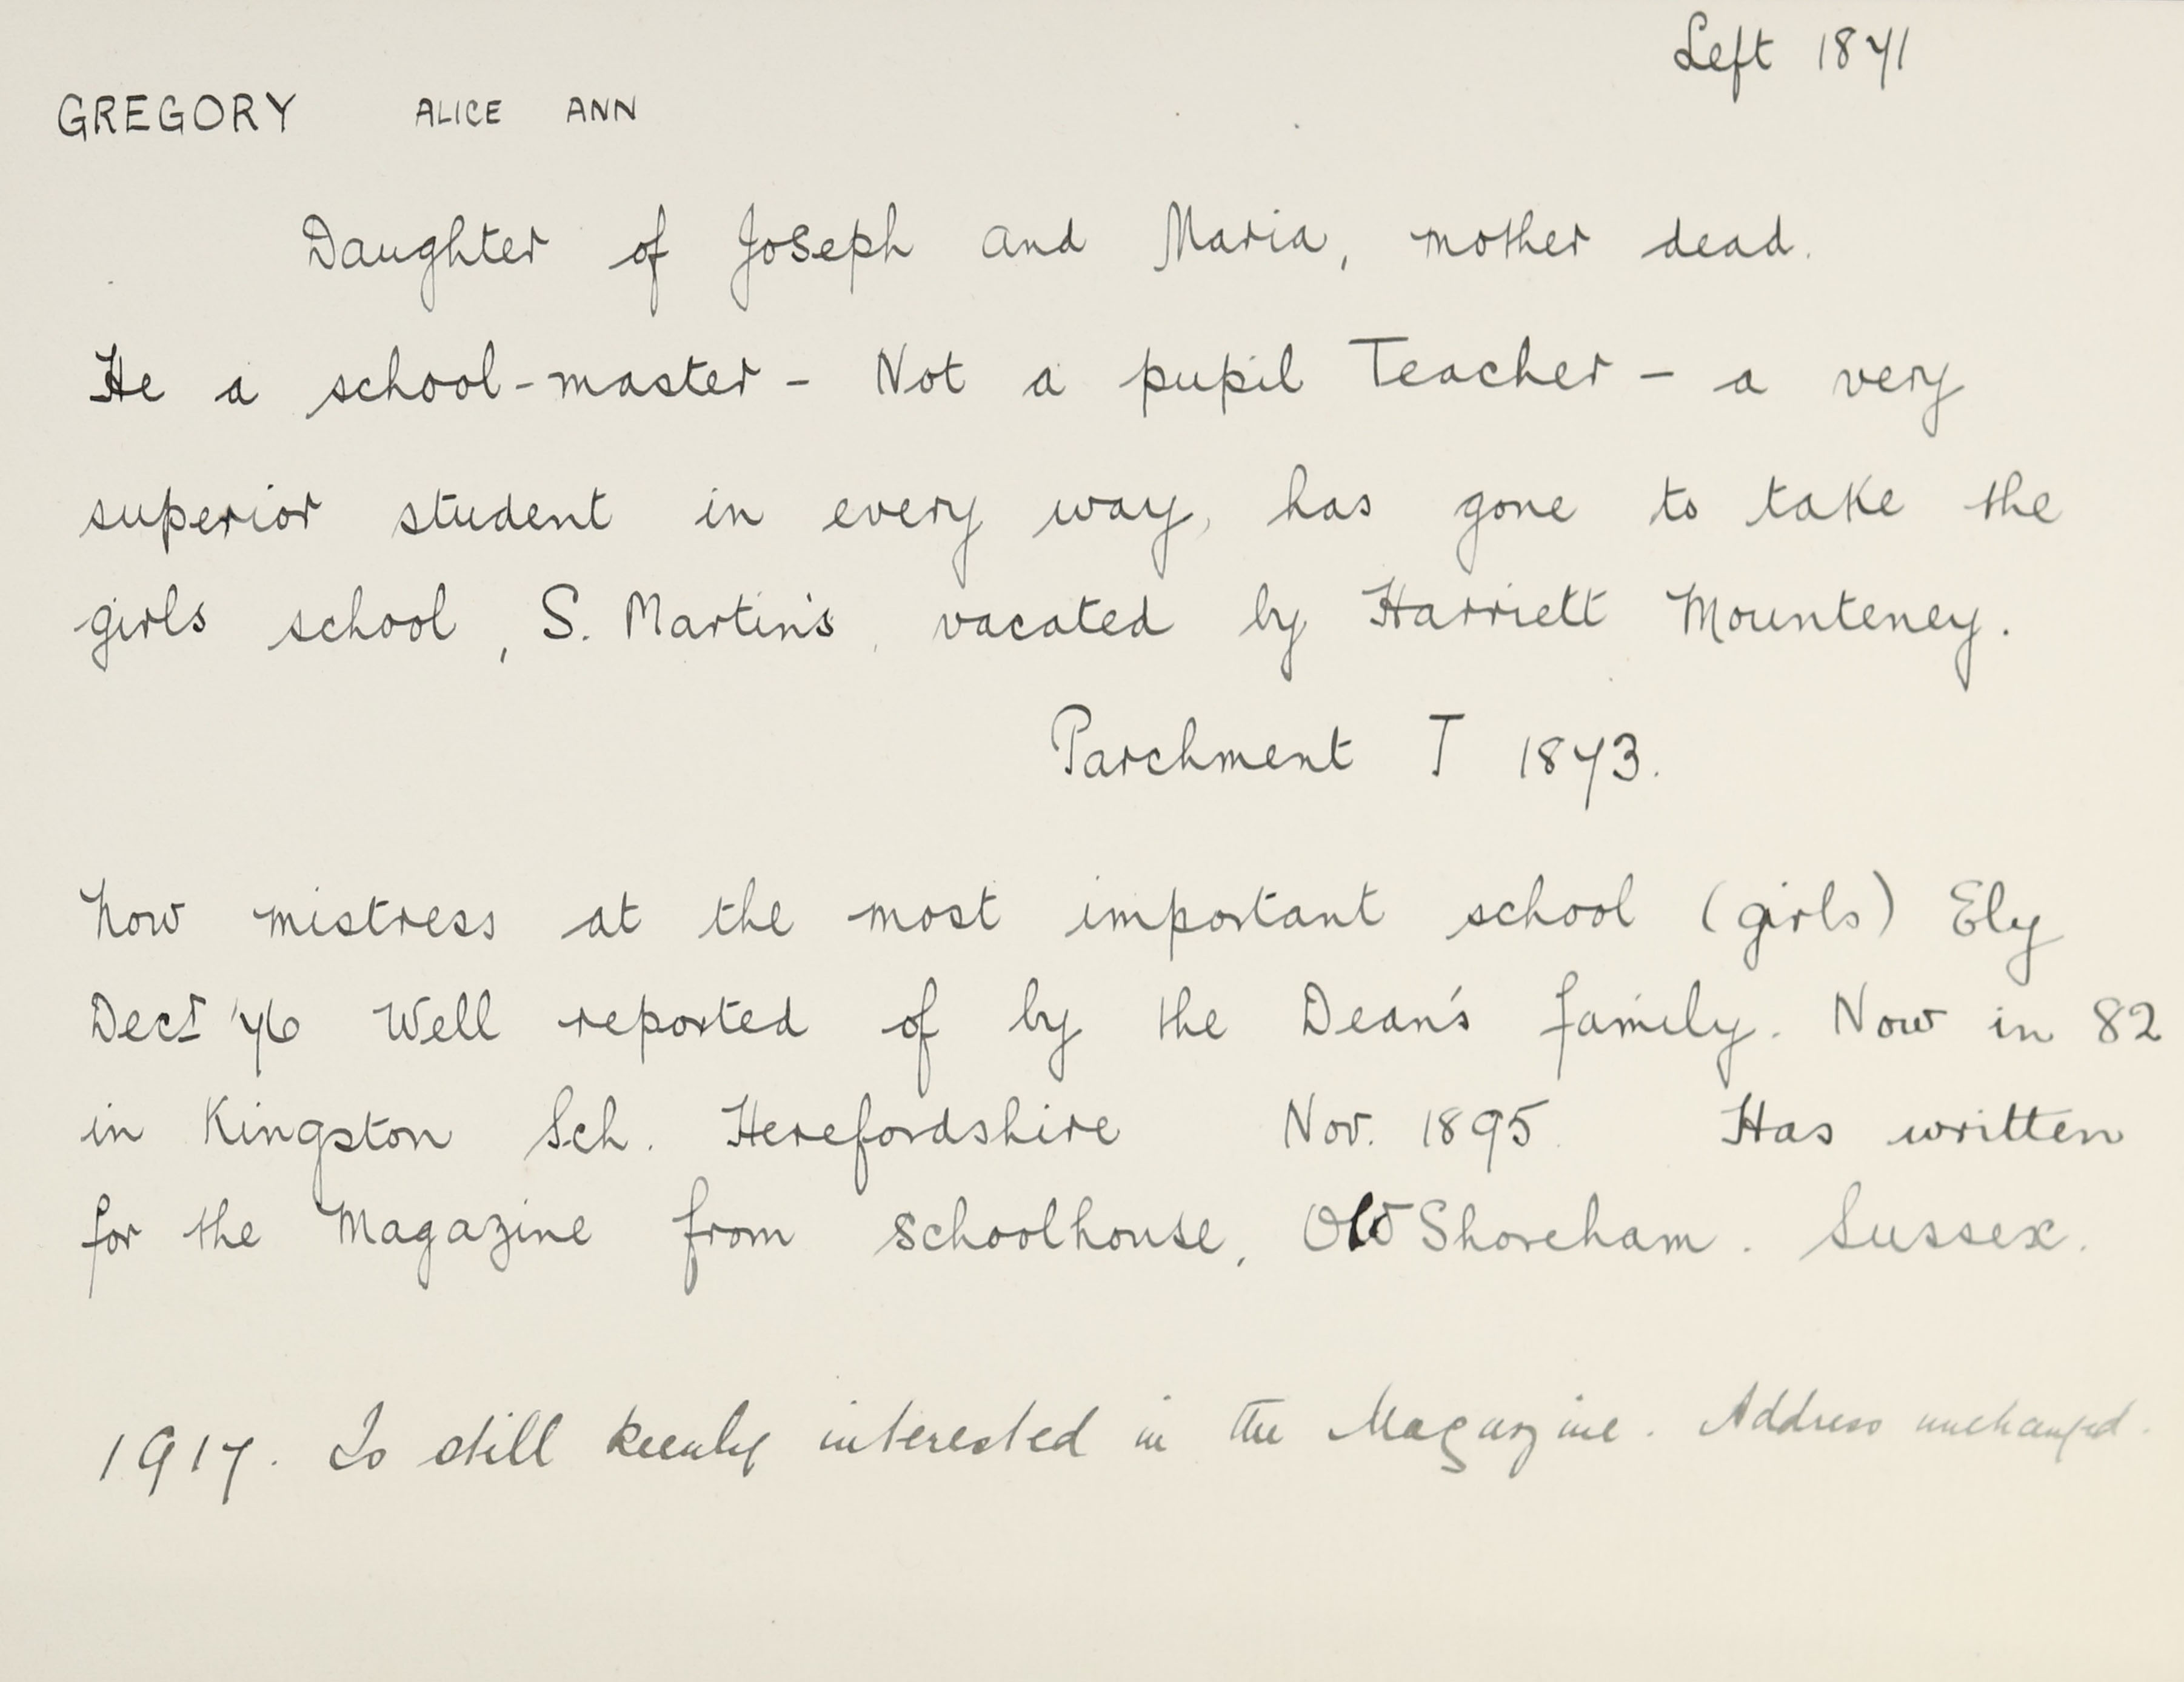 Left 1871
GREGORY ALICE ANN
Daughter of Joseph and Maria, mother dead.
He a school-master - Not a pupil Teacher - a very
superior student in every way, has gone to take the
girls school, S. Martin's, vacated by Harriett Mounteney.
Parchment T 1873.
Now mistress at the most important school (girls) Ely
Decr '76 Well reported of by the Dean's family. Now in 82
in Kingston Sch. Herefordshire Nov. 1895. Has written
for the Magazine from Schoolhouse, Old Shoreham. Sussex.
1917. Is still keenly interested in the Magazine. Address unchanged.